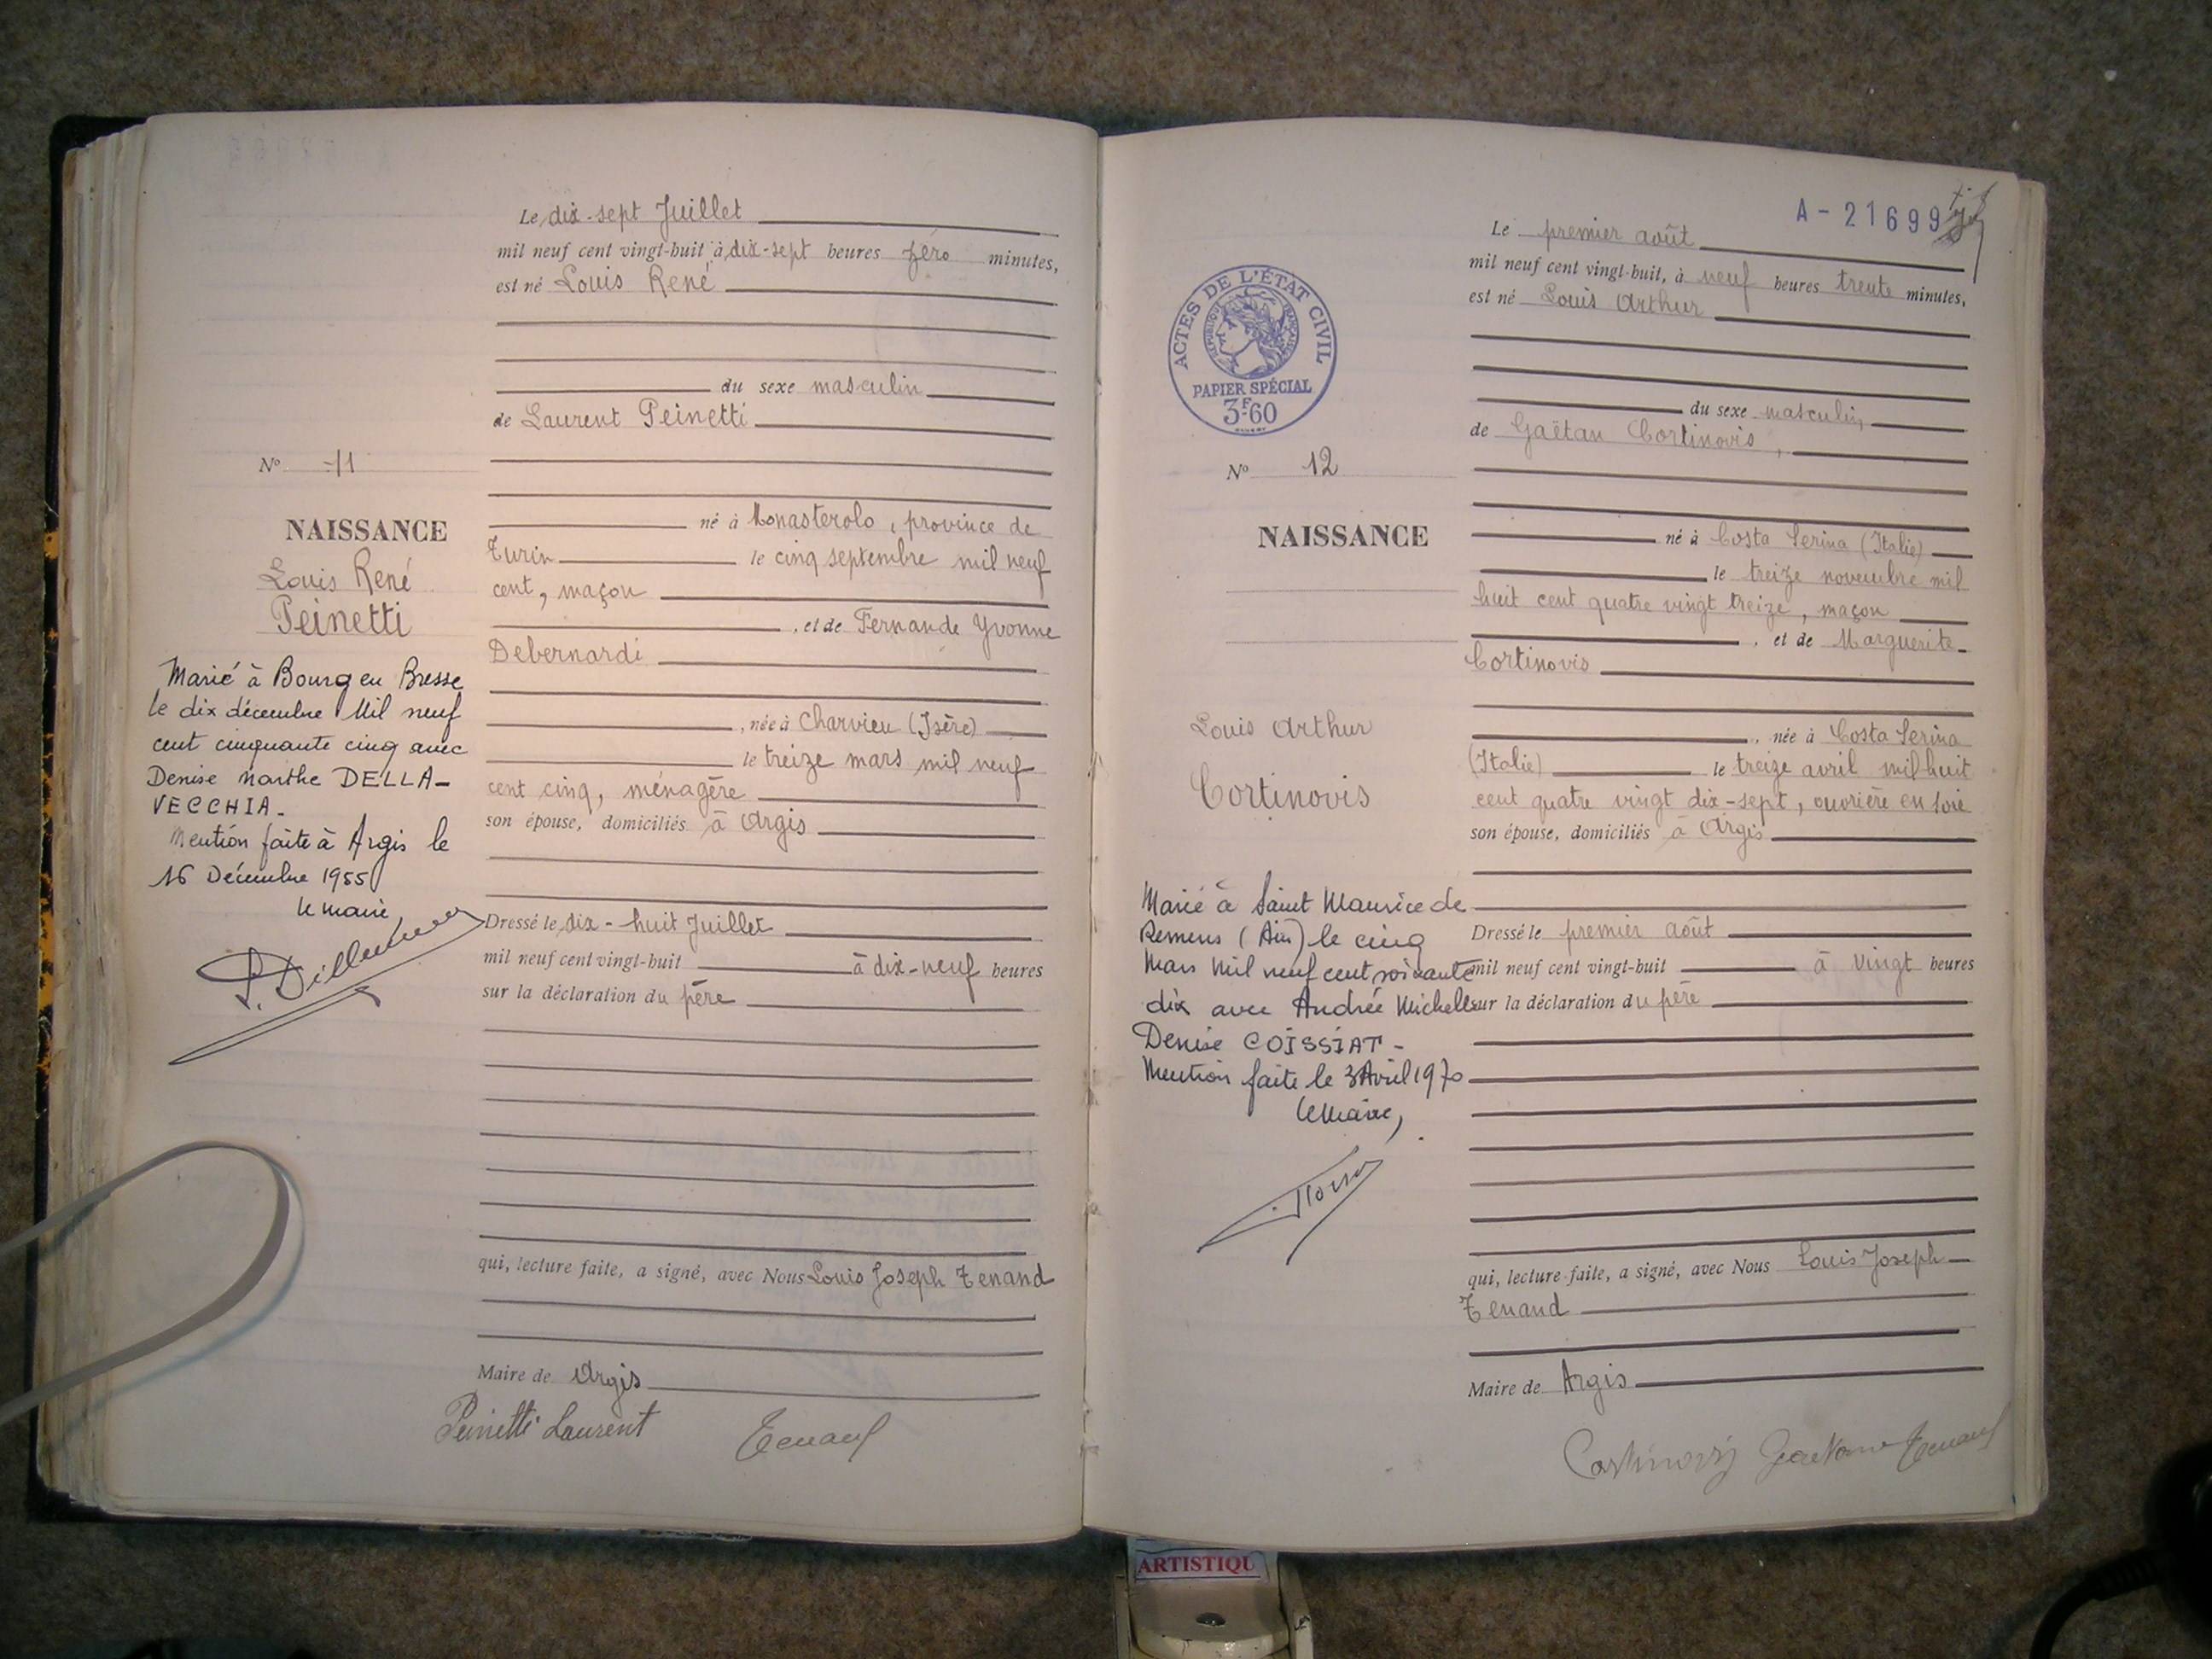 Le dix-sept Juillet
mil neuf cent vingt-huit à dix-sept heures zéro minutes,
est né Louis René
du sexe masculin
de Laurent Peinetti
né à Monasterolo, province de
Turin le cinq septembre mil neuf
cent, maçon
, et de Fernande Yvonne
Debernardi
, née à Charvieu (Isère)
le treize mars mil neuf
cent cinq, ménagère
son épouse, domiciliés à Argis
Dressé le dix-huit Juillet
mil neuf cent vingt-huit à dix-neuf heures
sur la déclaration du père
qui, lecture faite, a signé, avec Nous Louis Joseph Tenand
Maire de Argis
Peinetti Laurent Tenand
N° 11
NAISSANCE
Louis René
Peinetti
Marié à Bourg en Bresse
le dix décembre Mil neuf
cent cinquante cinq avec
Denise Marthe DELLA-
VECCHIA.
Mention faite à Argis le
16 Décembre 1955
le maire,
A-21699
Le premier août
mil neuf cent vingt-huit, à neuf heures trente minutes,
est né Louis Arthur
du sexe masculin,
de Gaëtan Cortinovis,
né à Costa Serina (Italie)
le treize novembre mil
huit cent quatre vingt treize, maçon
, et de Marguerite
Cortinovis
, née à Costa Serina
(Italie) le treize avril mil huit
cent quatre vingt dix-sept, ouvrière en soie
son épouse, domiciliés à Argis
Dressé le premier août
mil neuf cent vingt-huit à vingt heures
sur la déclaration du père
qui, lecture faite, a signé, avec Nous Louis Joseph
Tenand
Maire de Argis
Cortinovis Gaetano Tenand
ACTES DE L'ÉTAT CIVIL
RÉPUBLIQUE FRANÇAISE
PAPIER SPÉCIAL
3F60
N° 12
NAISSANCE
Louis Arthur
Cortinovis
Marié à Saint Maurice de
Remens (Ain) le cinq
Mars Mil neuf cent soixante
dix avec Andrée Michelle
Denise COISSIAT -
Mention faite le 3 Avril 1970
le Maire,
ARTISTIQU